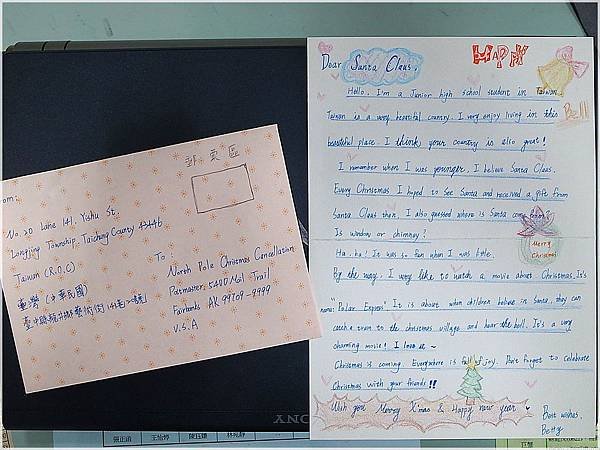 郵票區
From:
No.20 Lane 141, Yishu St.
Longjing Township, Taichung County 43446
Taiwan (R.O.C)
臺灣(中華民國)
臺中縣龍井鄉藝術街141巷20號
To:
North Pole Christmas Cancellation
Postmaster, 5400 Mail Trail
Fairbanks AK 99709-9999
U.S.A
HAPPY
Dear Santa Claus,
Bell
Hello. I'm a Junior high school student in Taiwan.
Taiwan is a very beautiful country. I very enjoy living in this
beautiful place. I think your country is also great!
I remember when I was younger, I believe Santa Claus.
Every Christmas I hoped to see Santa and received a gift from
Santa Claus then. I also guessed where is Santa come from.
Is window or chimney?
Ha, ha! It was so fun when I was little.
Merry Christmas
By the way, I very like to watch a movie about Christmas. It's
name: "Polar Express" It is about when children believe in Santa, they can
catch a train to the christmas village and hear the bell. It's a very
charming movie! I love it~
Christmas is coming. Everywhere is full of joy. Don't forget to celebrate
Christmas with your friends!!
Wish you Merry X'mas & Happy new year
Best wishes,
Betty
SONY